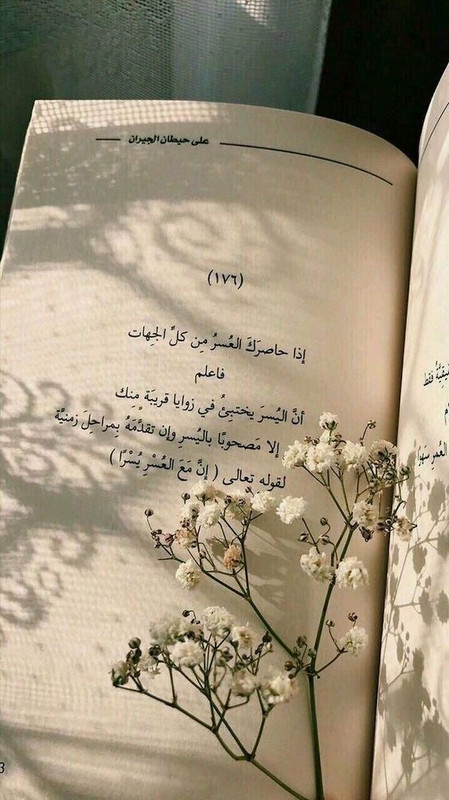 على حيطان الجيران
(١٧٦)
إذا حاصرَكَ العُسرُ مِن كلِّ الجِهات
فاعلم
أنَّ اليُسرَ يختبِئُ في زوايا قريبَة مِنك
إلا مَصحوبًا باليُسرِ وإن تقدَّمَهُ بِمراحِلَ زمنيَّة
لقوله تعالى ( إنَّ مَعَ العُسْرِ يُسْرًا )
فقط
العُمر سَهوا
3